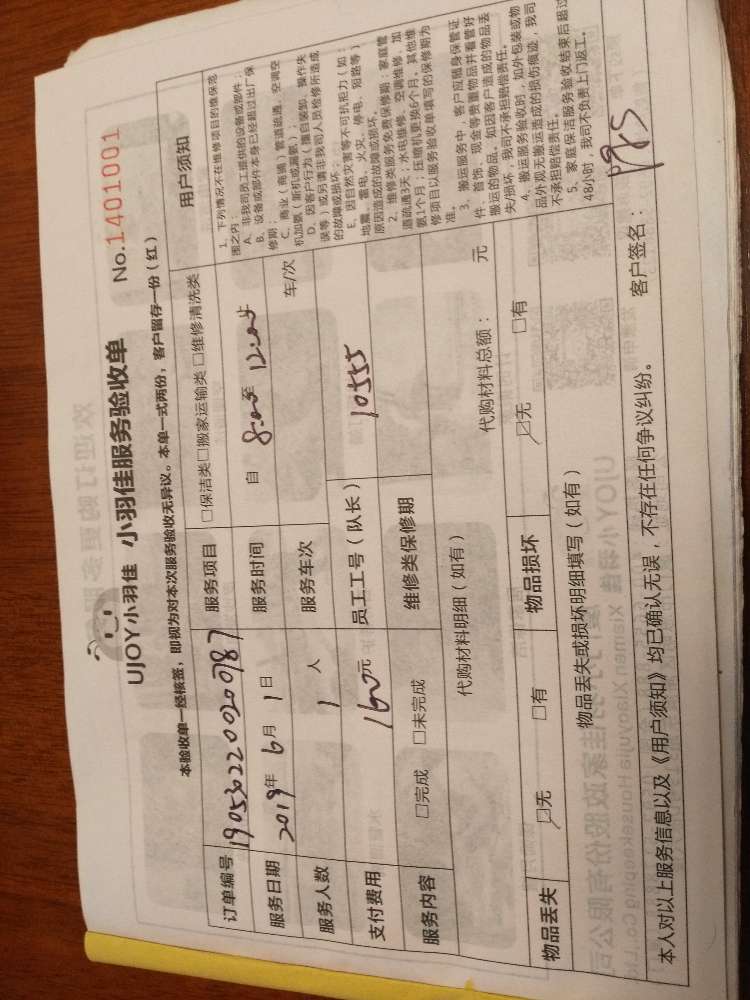 UJOY小羽佳 小羽佳服务验收单 No.1401001
本验收单一经核签，即视为对本次服务验收无异议。本单一式两份，客户留存一份（红）
订单编号 190530220020787 服务项目 □保洁类□搬家运输类 □维修清洗类
服务日期 2019年 6月 1日 服务时间 自 8:00至 12:00止
服务人数 1 人 服务车次 车/次
支付费用 160元 员工工号（队长） 10555
服务内容 □完成 □未完成 维修类保修期
代购材料明细（如有） 代购材料总额： 元
物品丢失 ☑无 □有 物品损坏 ☑无 □有
物品丢失或损坏明细填写（如有）
用户须知
1、下列情况不在维修项目的维保范
围之内：
A、非我司员工提供的设备或部件；
B、设备或部件本身已经超过出厂保
修期；
C、商业（商铺）管道疏通、空调空
机加氨（新机或漏氨）；
D、因客户行为（擅自装卸、操作失
误等）或另请非我司人员检修所造成
的故障或损坏；
E、因自然灾害等不可抗拒力（如：
地震、雷电、火灾、停电、短路等）
原因造成的故障或损坏。
2、维修类服务免费保修期：家庭管
道疏通3天；水电维修、空调维修、加
氨1个月；压缩机更换6个月。其他维
修项目以服务验收单填写的保修期为
准。
3、搬运服务中，客户应随身保管证
件、首饰、现金等贵重物品并看管好
搬运的物品。如因客户造成的物品丢
失/损坏，我司不承担赔偿责任。
4、搬运服务验收时，如外包装或物
品外观无搬运造成的损伤痕迹，我司
不承担赔偿责任。
5、家庭保洁服务验收结束后超过
48小时，我司不负责上门返工。
本人对以上服务信息以及《用户须知》均已确认无误，不存在任何争议纠纷。 客户签名：